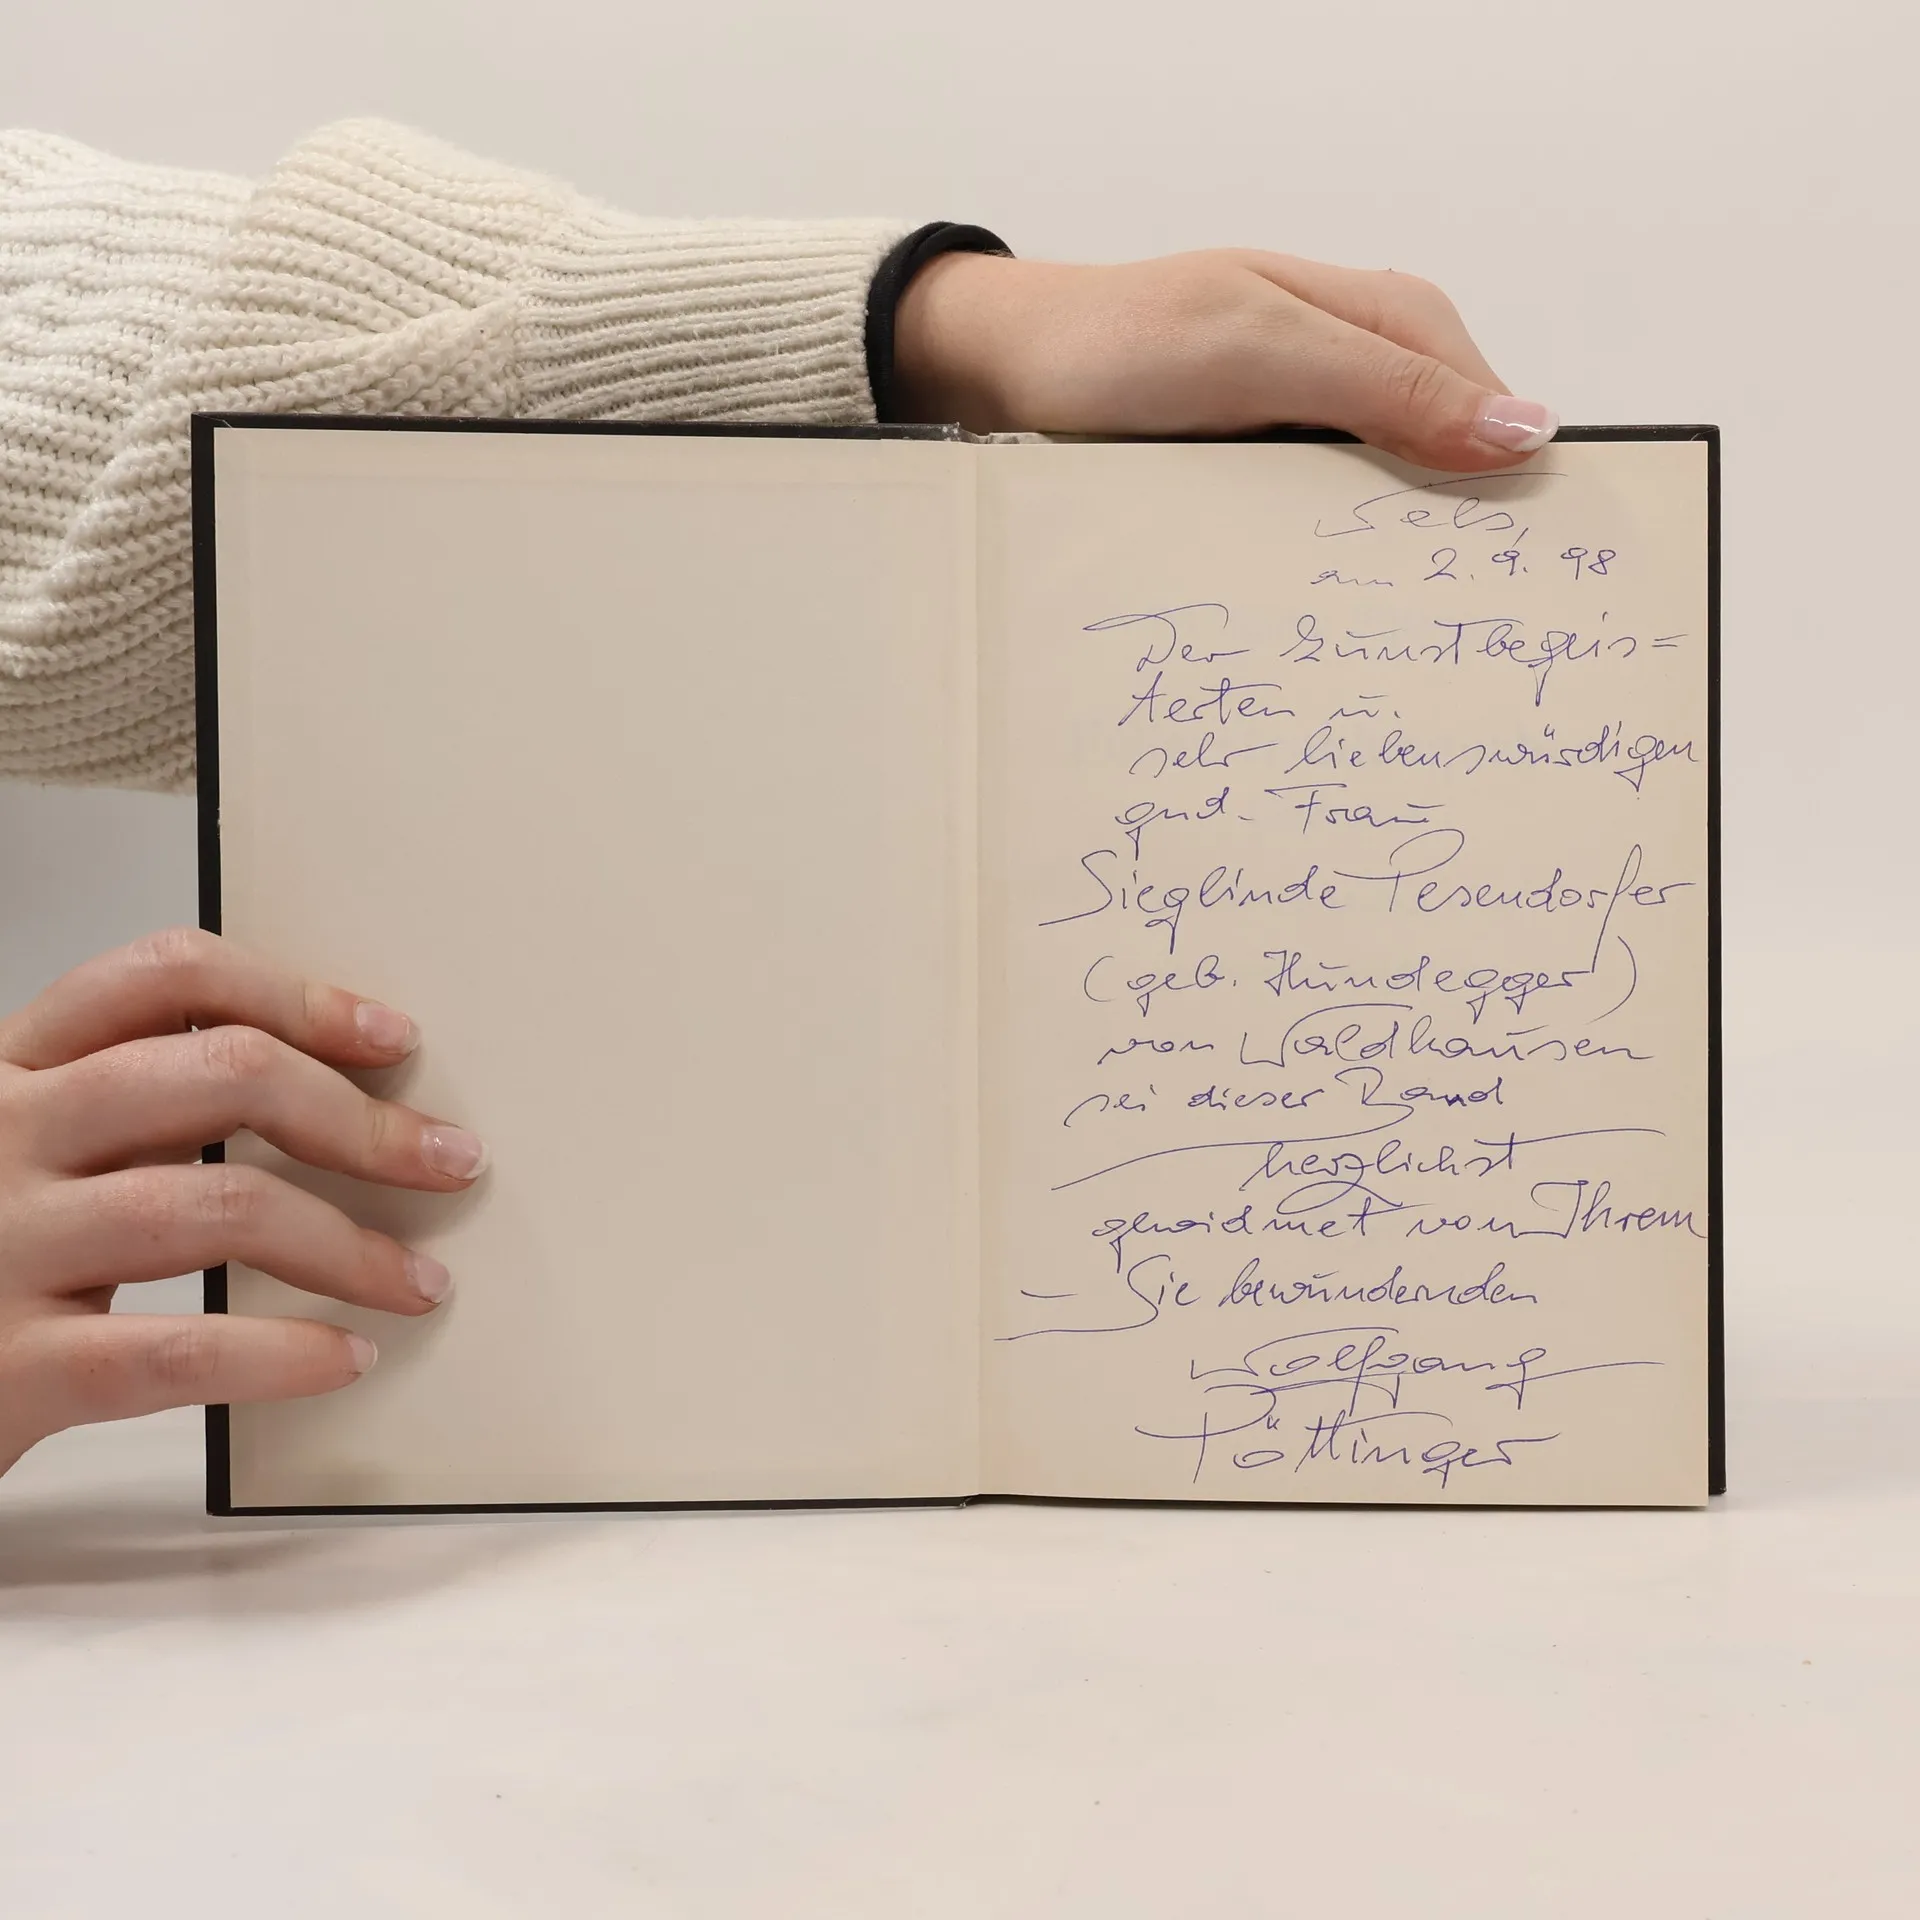 Wels,
am 2. 9. 98
Der kunstbegeis=
terten u.
sehr liebenswürdigen
gnd. Frau
Sieglinde Pesendorfer
(geb. Hundegger)
von Waldhausen
sei dieser Band
herzlichst
gewidmet von Ihrem
– Sie bewundernden
Wolfgang
Pöttinger